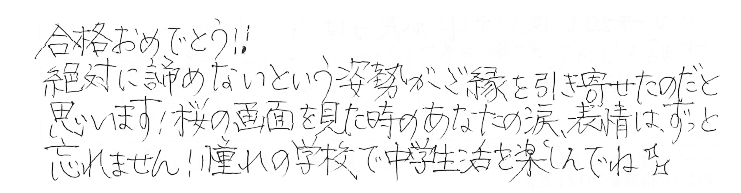 合格おめでとう!!
絶対に諦めないという姿勢がご縁を引き寄せたのだと
思います!桜の画面を見た時のあなたの涙、表情は、ずっと
忘れません!!憧れの学校で中学生活を楽しんでね